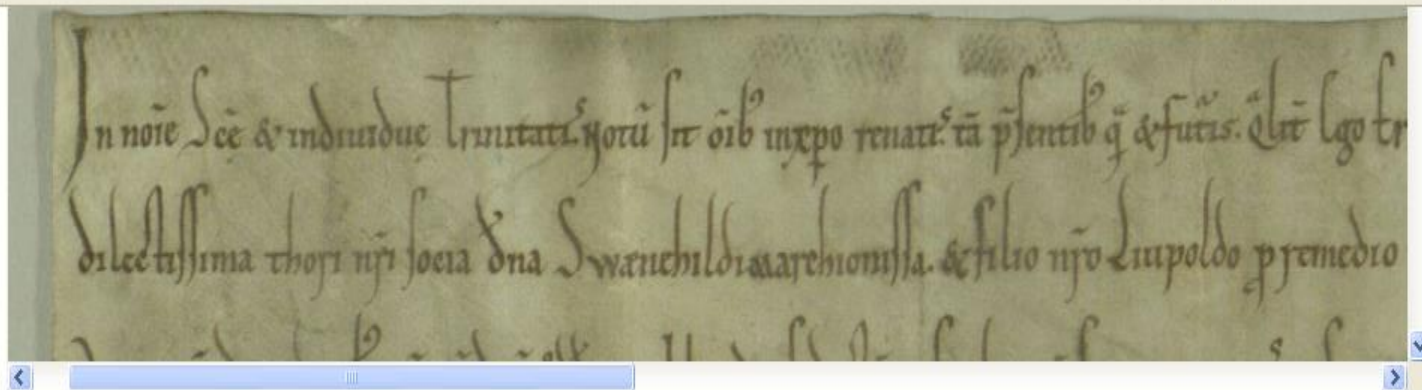 In noīe Scē & indiuiduę Trinitatis. Notū sit oīb; in xpo renatis. tā p̄sentib; q̄ & fut̄is. Qͣlit̄ Ego
dilectissima thori nr̄i socia d̄na Swanehildi marchionissa. & filio nr̄o Liupoldo ꝓ remedio